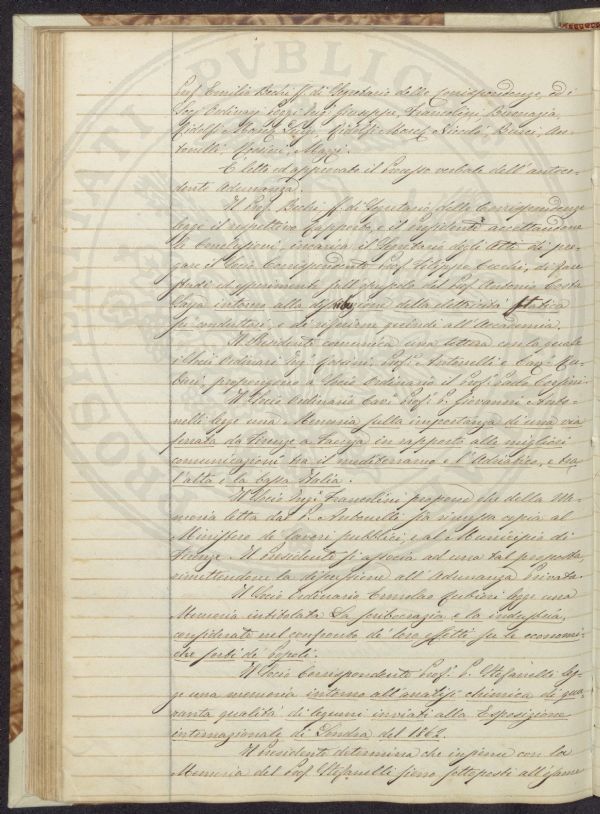 Prof. Emilio Bechi ff. di Segretario delle Corrispondenze, ed i
Socj Ordinarj Poggi Ing. Giuseppe, Francolini Buonagia,
Ridolfi March. Luigi, Ridolfi March. Niccolò, Busci, An-
tonelli, Rossini, Mazzi.
È letto ed approvato il Processo verbale dell'antece-
dente adunanza.
Il Prof. Bechi ff. di Segretario delle Corrispondenze
legge il respettivo Rapporto, e il Presidente accettandone
le Conclusioni, incarica il Segretario degli Atti di pre-
gare il Socio Corrispondente Prof. Filippo Cecchi, di fare
studi ed esperimenti sull'opuscolo del Prof. Antonio Costa
Saya intorno alla distribuzione della elettricità statica
sui conduttori, e di riferirne quindi all'Accademia.
Il Presidente comunica una lettera con la quale
i Socii Ordinari Ing. Rossini, Prof. Antonelli e Cav. Ru-
bieri, propongono a Socio Ordinario il Prof. Paolo
Il Socio Ordinario Cav. Prof. P. Giovanni Anto-
nelli legge una Memoria sulla importanza di una via
ferrata da Firenze a Faenza in rapporto alla migliori
comunicazioni tra il mediterraneo e l'Adriatico, e tra
l'alta e la bassa Italia.
Il Socio Ing. Francolini propone che della Me-
moria letta dal P. Antonelli sia rimessa copia al
Ministero de' lavori pubblici, e al Municipio di
Firenze. Il Presidente si associa ad una tal proposta,
rimettendone la discussione all'Adunanza Privata.
Il Socio Ordinario Ermolao Rubieri legge una
Memoria intitolata La burocrazia e la industria,
considerate nel confronto de' loro effetti su le economi-
che sorti de' popoli.
Il Socio Corrispondente Prof. P. Stefanelli leg-
ge una memoria intorno all'analisi chimica di qua-
ranta qualità di legumi inviati alla Esposizione
internazionale di Londra del 1862.
Il Presidente determina che insieme con la
Memoria del Prof. Stefanelli sieno sottoposti all'esame